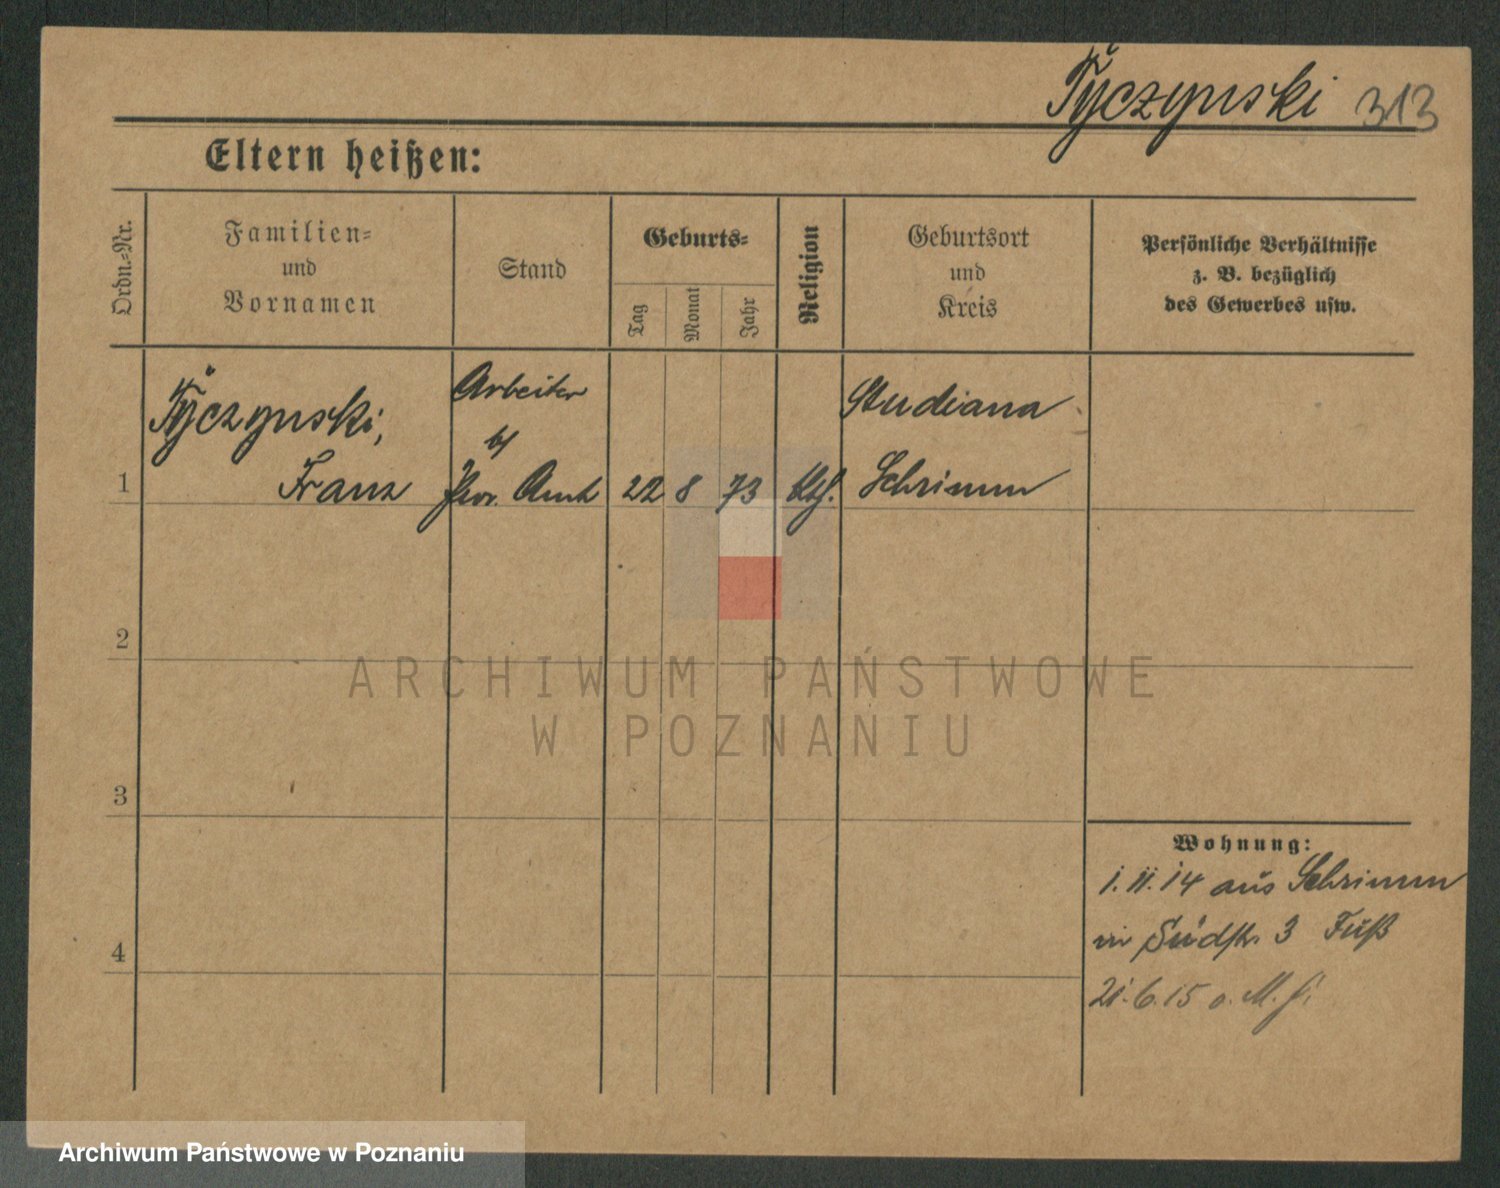 Tyczynski 313
Eltern heißen:
Ordn.-Nr.
Familien-
und
Vornamen
Stand
Geburts-
Tag
Monat
Jahr
Religion
Geburtsort
und
Kreis
Persönliche Verhältnisse
z. B. bezüglich
des Gewerbes usw.
Tyczynski,
Arbeiter
Studiana
1 Franz Prov. Amt 22 8 73 kth. Schrimm
2
3
4
Wohnung:
1. 11. 14 aus Schrimm
in Südstr. 3
21. 6. 15
ARCHIWUM PAŃSTWOWE
W POZNANIU
Archiwum Państwowe w Poznaniu